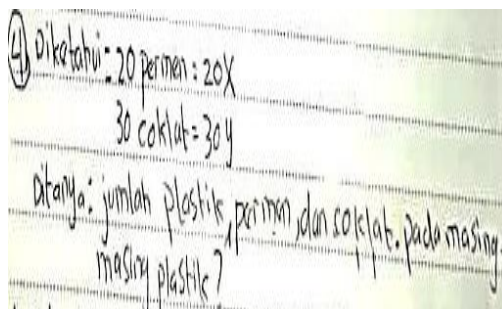 ④ Diketahui: 20 permen: 20X
30 coklat = 30y
Ditanya: jumlah plastik, permen, dan soklat. pada masing-
masing plastik?